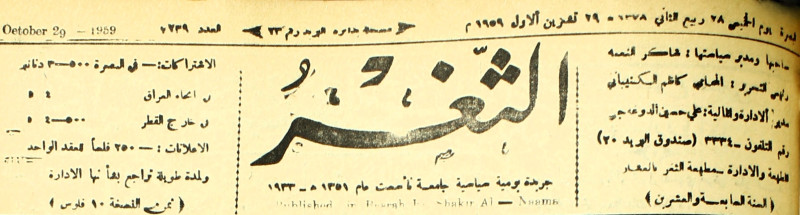 البصرة يوم الخميس ٢٨ ربيع الثاني ١٣٧٨ ھ ٢٩ تشرين الاول ١٩٥٩ م
مسجلة بدائرة البريد رقم ٢٣
العدد ٧٢٣٩
October 29 — 1959
صاحبها ومدير سياستها : شاكر النعمه
رئيس التحرير : المحامي كاظم الكشيباني
مدير الادارة والمالية : علي حسين
رقم التلفون — ٣٣٣٤ (صندوق البريد ٢٠)
المطبعة والادارة — مطبعة الثغر بالعشار
( السنة السابعة والعشرين )
الثغر
جريدة يومية سياسية جامعة تأسست عام ١٣٥١ ھ — ١٩٣٣
Published in Basrah by Shakir Al — Naama
الاشتراكات : — في البصرة ٣٠٠٠ دنانير
في انحاء العراق ٤ ٥
في خارج القطر ٤٥٠٠ ٥
الاعلانات : — ٢٥٠ فلساً للعقد الواحد
ولمدة طويلة تراجع بشأنها الادارة
( ثمن النسخة ١٠ فلوس )